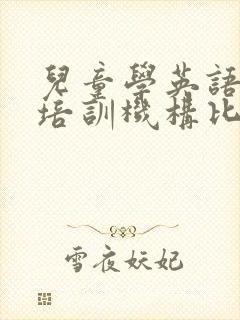 兒童學英語
培訓機構比
雪夜妖妃